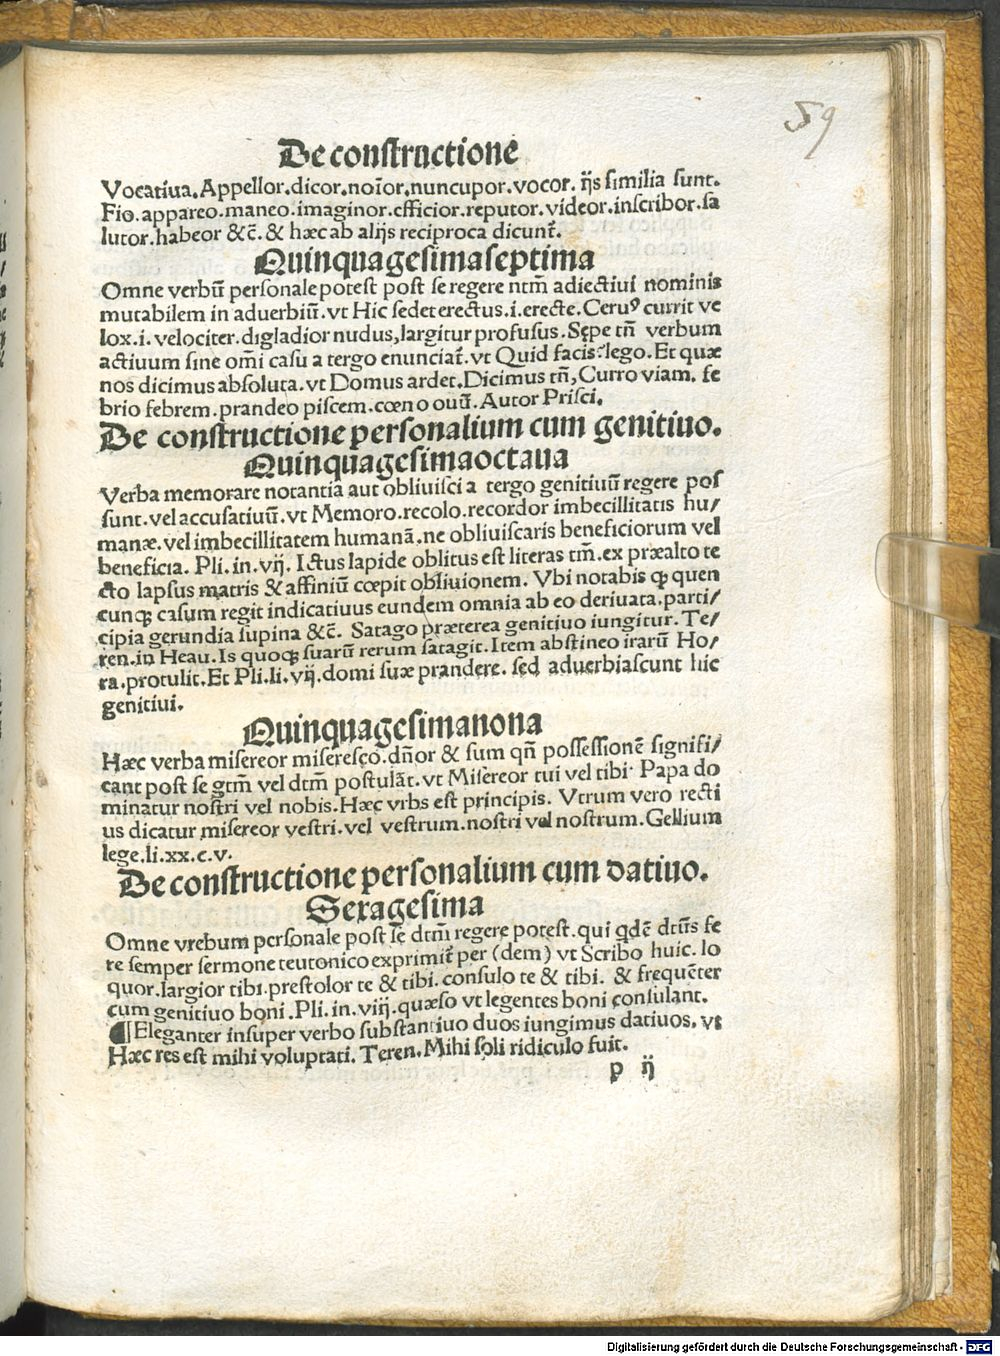 59
De constructione
Vocatiua.Appellor.dicor.noĩor.nuncupor.vocor. ijs similia sunt.
Fio.appareo.maneo.imaginor.efficior.reputor.videor.inscribor.sa
lutor.habeor &c̃. & hæc ab alijs reciproca dicunt̃.
Quinquagesimaseptima
Omne verbũ personale potest post se regere ntm̃ adiectiui nominis
mutabilem in aduerbiũ.vt Hic sedet erectus.i.erecte.Ceruꝰ currit ve
lox.i.velociter.digladior nudus,largitur profusus.Sępe tñ verbum
actiuum sine om̃i casu a tergo enunciat̃.vt Quid facis?lego.Et quæ
nos dicimus absoluta.vt Domus ardet.Dicimus tñ,Curro viam. fe
brio febrem.prandeo piscem.cœno ouũ.Autor Prisci.
De constructione personalium cum genitiuo.
Quinquagesimaoctaua
Verba memorare notantia aut obliuisci a tergo genitiuũ regere pos
sunt.vel accusatiuũ.vt Memoro.recolo.recordor imbecillitatis hu/
manæ.vel imbecillitatem humanã.ne obliuiscaris beneficiorum vel
beneficia. Pli.in.vij. Ictus lapide oblitus est literas tm̃.ex præalto te
cto lapsus matris & affiniũ cœpit obliuionem. Vbi notabis ꝙ quen
cunqꝫ casum regit indicatiuus eundem omnia ab eo deriuata.parti/
cipia gerundia supina &c̃. Satago præterea genitiuo iungitur.Te/
ren.in Heau.Is quoqꝫ suarũ rerum satagit.Item abstineo irarũ Ho/
ra.protulit.Et Pli.li.vij.domi suæ prandere. sed aduerbiascunt hic
genitiui.
Quinquagesimanona
Hæc verba misereor miseresco.dñor & sum qñ possessionẽ signifi/
cant post se gtm̃ vel dtm̃ postulãt.vt Misereor tui vel tibi. Papa do
minatur nostri vel nobis.Hæc vrbs est principis. Vtrum vero recti
us dicatur misereor vestri.vel vestrum.nostri vel nostrum.Gellium
lege.li.xx.c.v.
De constructione personalium cum datiuo.
Sexagesima
Omne vrebum personale post se dtm̃ regere potest.qui qdẽ dtũs fe
re semper sermone teutonico exprimit̃ per (dem) vt Scribo huic. lo
quor.largior tibi.prestolor te & tibi.consulo te & tibi. & frequẽter
cum genitiuo boni.Pli.in.viij.quæso vt legentes boni consulant.
¶Eleganter insuper verbo substantiuo duos iungimus datiuos. vt
Hæc res est mihi voluptati. Teren.Mihi soli ridiculo fuit.
p ij
Digitalisierung gefördert durch die Deutsche Forschungsgemeinschaft - DFG